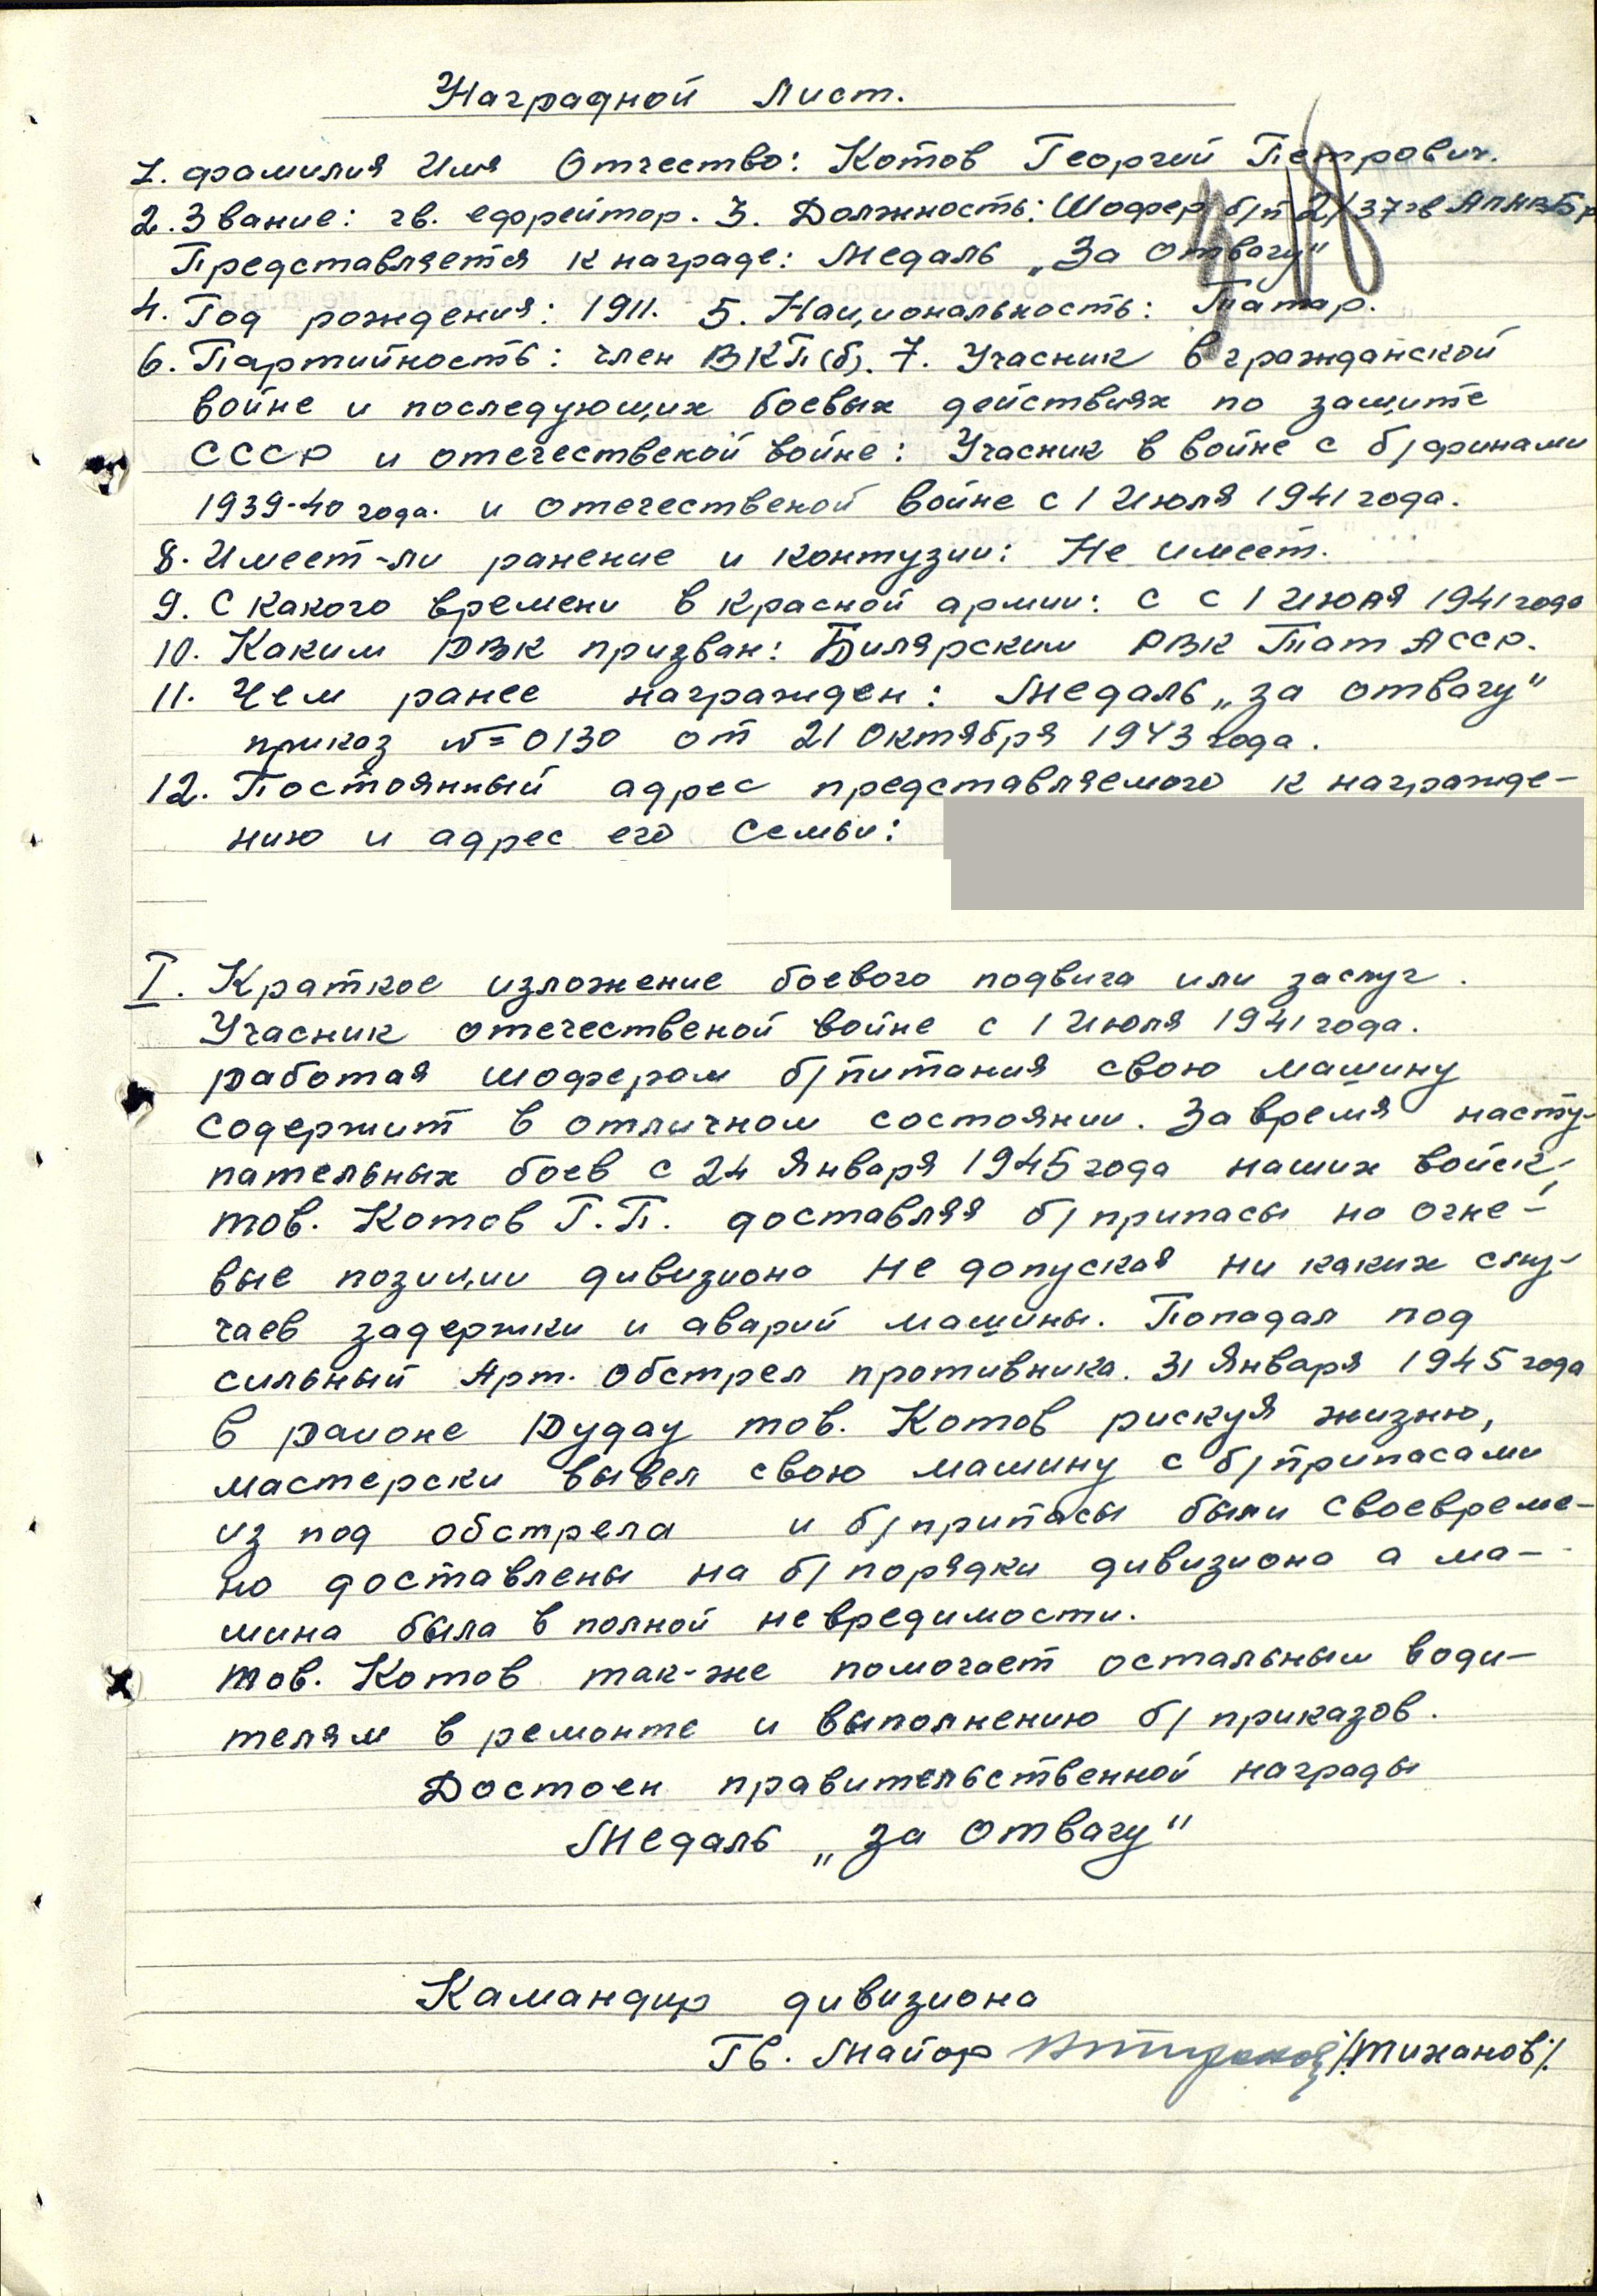 Наградной Лист.
1. фамилия Имя Отчество: Котов Георгий Петрович.
2. Звание: гв. ефрейтор. 3. Должность: Шофер б/п 2/37 гв АПАБр
Представляется к награде: Медаль „За отвагу"
4. Год рождения: 1911. 5. Национальность: Татар.
6. Партийность: член ВКП(б). 7. Учасник в гражданской
войне и последующих боевых действиях по защите
СССР и отечественой войне: Учасник в войне с б/финами
1939-40 года. и отечественой войне с 1 Июля 1941 года.
8. Имеет-ли ранение и контузии: Не имеет.
9. С какого времени в Красной армии: с с 1 Июля 1941 года
10. Каким РВК призван: Билярским РВК Тат АССР.
11. Чем ранее награжден: Медаль „за отвагу"
приказ №=0130 от 21 Октября 1943 года.
12. Постоянный адрес представляемого к награжде-
нию и адрес его семьи:
I. Краткое изложение боевого подвига или заслуг.
Учасник отечественой войне с 1 Июля 1941 года.
работая шофером б/питания свою машину
содержит в отличном состоянии. За время насту-
пательных боев с 24 Января 1945 года наших войск,
тов. Котов Г.П. доставляя б/припасы на огне-
вые позиции дивизиона не допуская ни каких слу-
чаев задержки и аварий машины. Попадал под
сильный Арт. обстрел противника. 31 Января 1945 года
в районе Рудау тов. Котов рискуя жизню,
мастерски вывел свою машину с б/припасами
из под обстрела и б/припасы были своевреме-
но доставлены на б/порядки дивизиона а ма-
шина была в полной невредимости.
тов. Котов так-же помогает остальным води-
телям в ремонте и выполнению б/приказов.
Достоен правительственной награды
Медаль „за отвагу"
Камандир дивизиона
Гв. Майор /Тиханов/.